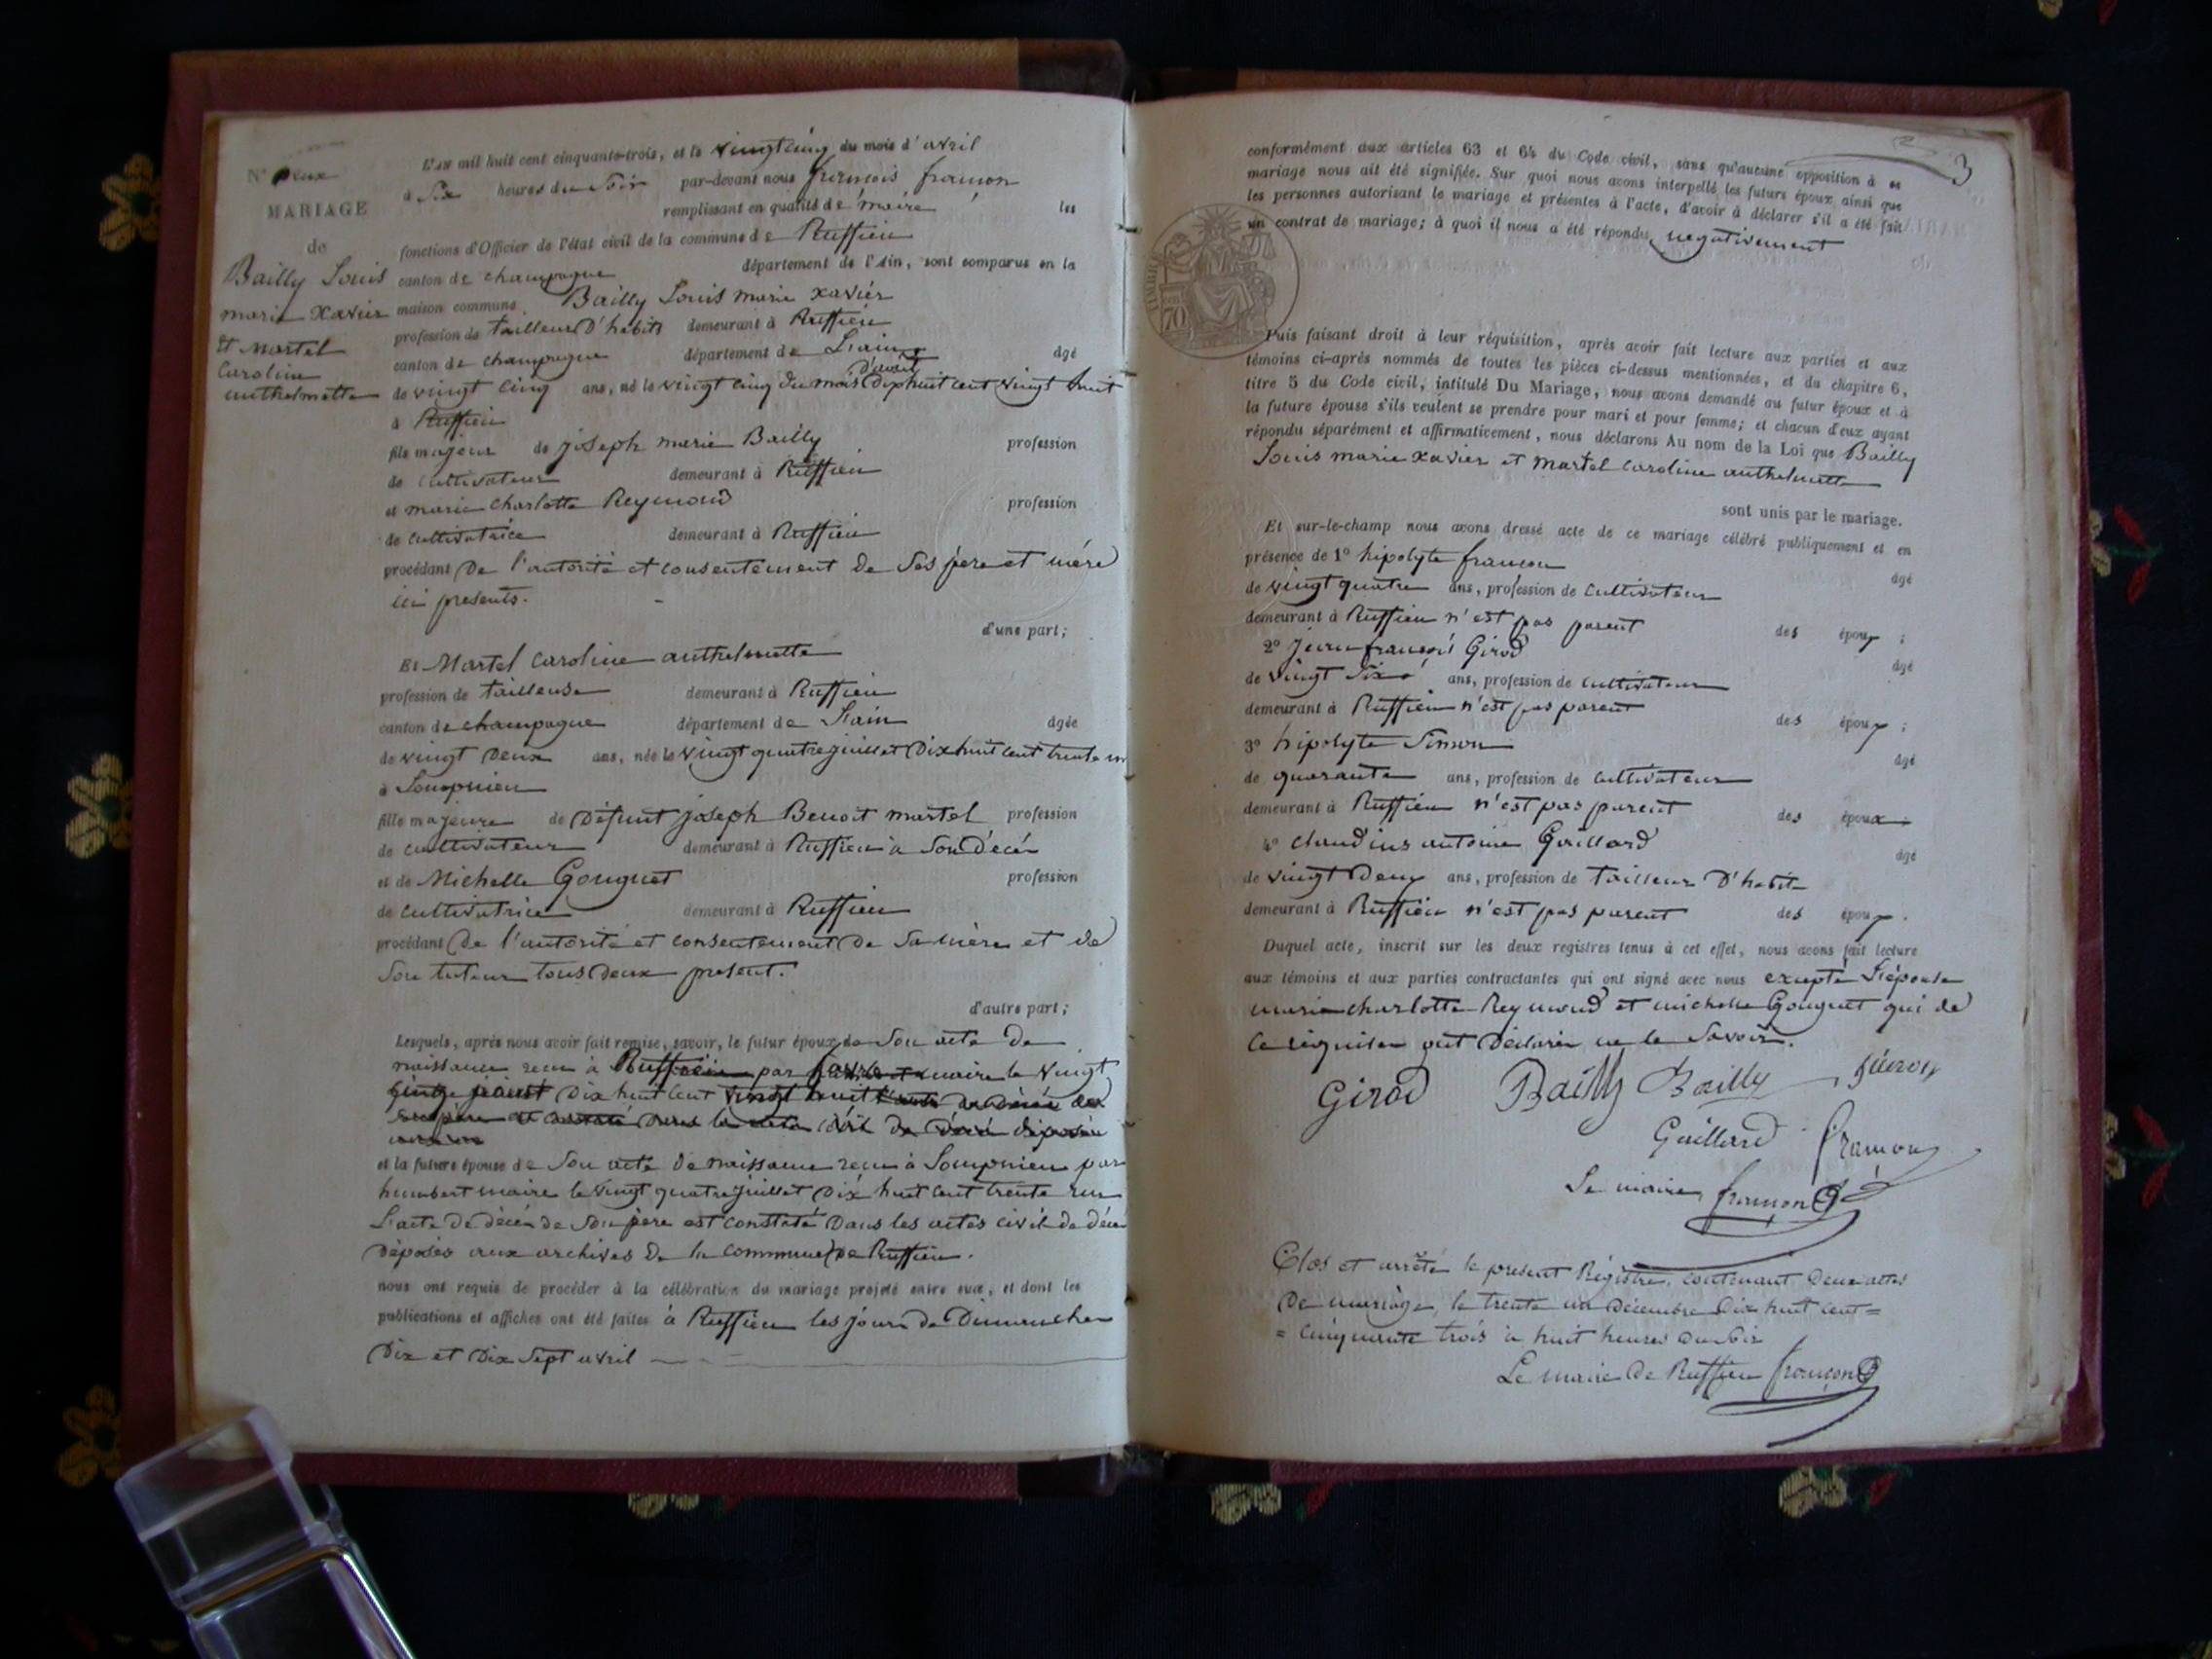 N° Deux
MARIAGE
de
Bailly Louis
marie Xavier
Et Martel
Caroline
anthelmette
L'AN mil huit cent cinquante-trois, et le vingt cinq du mois d'avril
à Six heures du Soir par-devant nous françois françon
remplissant en qualité de maire les
fonctions d'Officier de l'état civil de la commune de Ruffieu
canton de champagne département de l'Ain, sont comparus en la
maison commune Bailly Louis marie xavier
profession de tailleur D'habits demeurant à Ruffieu
canton de champagne département de L'ain âgé
de vingt cinq ans, né le vingt cinq du mois D'avril Dix huit cent vingt huit
à Ruffieu
fils majeur de joseph marie Bailly profession
de cultivateur demeurant à Ruffieu
et marie Charlotte Reymond profession
de cultivatrice demeurant à Ruffieu
procédant De l'autorité et consentement de Ses père et mère
ici presents.
d'une part;
Et Martel Caroline anthelmette
profession de tailleuse demeurant à Ruffieu
canton de champagne département de L'ain âgée
de vingt Deux ans, née le vingt quatre juillet Dix huit cent trente un
à Songnieu
fille majeure de Défunt joseph Benoit martel profession
de cultivateur demeurant à Ruffieu à Son Décé
et de Michelle Gouguet profession
de cultivatrice demeurant à Ruffieu
procédant De l'autorité et consentement De Sa mère et de
Son tuteur tous Deux present.
d'autre part;
Lesquels, après nous avoir fait remise, savoir, le futur époux de Son acte De
naissance recu à Ruffieu par maire le vingt
Dix huit cent vingt huit
et la future épouse de Son acte De naissance recu à Songnieu par
humbert maire le vingt quatre juillet Dix huit cent trente un
L'acte De décé de Son père est constaté Dans les actes civil de décé
Déposés aux archives De la commune De Ruffieu.
nous ont requis de procéder à la célébration du mariage projeté entre eux, et dont les
publications et affiches ont été faites à Ruffieu les jours de Dimanche
Dix et Dix Sept avril
3
conformément aux articles 63 et 64 du Code civil, sans qu'aucune opposition à ce
mariage nous ait été signifiée. Sur quoi nous avons interpellé les futurs époux ainsi que
les personnes autorisant le mariage et présentes à l'acte, d'avoir à déclarer s'il a été fait
un contrat de mariage; à quoi il nous a été répondu negativement
TIMBRE
70
Puis faisant droit à leur réquisition, après avoir fait lecture aux parties et aux
témoins ci-après nommés de toutes les pièces ci-dessus mentionnées, et du chapitre 6,
titre 5 du Code civil, intitulé Du Mariage, nous avons demandé au futur époux et à
la future épouse s'ils veulent se prendre pour mari et pour femme; et chacun d'eux ayant
répondu séparément et affirmativement, nous déclarons Au nom de la Loi que Bailly
Louis marie xavier et martel caroline anthelmette
sont unis par le mariage.
Et sur-le-champ nous avons dressé acte de ce mariage célébré publiquement et en
présence de 1° hipolyte françon âgé
de vingt quatre ans, profession de cultivateur
demeurant à Ruffieu n'est pas parent des époux ;
2° Jean françois Girod âgé
de vingt Six ans, profession de cultivateur
demeurant à Ruffieu n'est pas parent des époux ;
3° hipolyte Simon âgé
de quarante ans, profession de cultivateur
demeurant à Ruffieu n'est pas parent des époux ;
4° claudius antoine Gaillard âgé
de vingt Deux ans, profession de tailleur D'habits
demeurant à Ruffieu n'est pas parent des époux .
Duquel acte, inscrit sur les deux registres tenus à cet effet, nous avons fait lecture
aux témoins et aux parties contractantes qui ont signé avec nous excepté L'épouse
marie charlotte Reymond et michelle Gouguet qui de
ce requises ont Déclarer ne le Savoir.
Girod Bailly Bailly
Gaillard françon
Le maire françon
Clos et arrêté le present Régistre, contenant Deux actes
De mariage, le trente un Décembre Dix huit cent =
= cinquante trois à huit heures Du Soir
Le maire De Ruffieu françon